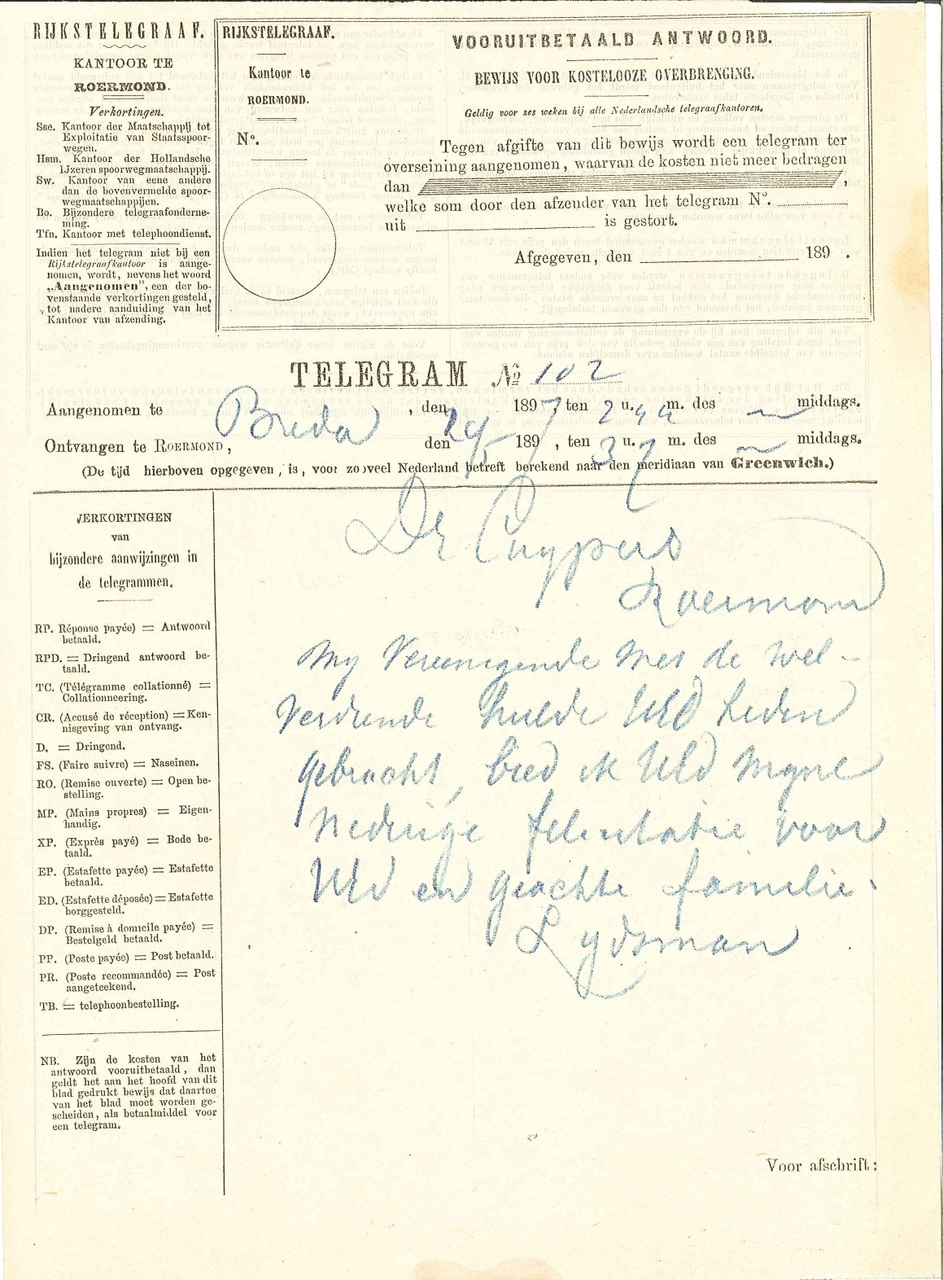 RIJKSTELEGRAAF.
KANTOOR TE
ROERMOND.
Verkortingen.
Sse. Kantoor der Maatschappij tot
Exploitatie van Staatsspoor-
wegen.
Hsm. Kantoor der Hollandsche
IJzeren spoorwegmaatschappij.
Sw. Kantoor van eene andere
dan de bovenvermelde spoor-
wegmaatschappijen.
Bo. Bijzondere telegraafonderne-
ming.
Tfn. Kantoor met telephoondienst.
Indien het telegram niet bij een
Rijkstelegraafkantoor is aange-
nomen, wordt, nevens het woord
„Aangenomen”, een der bo-
venstaande verkortingen gesteld,
tot nadere aanduiding van het
Kantoor van afzending.
RIJKSTELEGRAAF.
Kantoor te
ROERMOND.
No.
VOORUITBETAALD ANTWOORD.
BEWIJS VOOR KOSTELOOZE OVERBRENGING.
Geldig voor zes weken bij alle Nederlandsche telegraafkantoren.
Tegen afgifte van dit bewijs wordt een telegram ter
overseining aangenomen, waarvan de kosten niet meer bedragen
dan ,
welke som door den afzender van het telegram No.
uit is gestort.
Afgegeven, den 189 .
TELEGRAM No 102
Aangenomen te Breda, den 24/5 1897 ten 2 u. 44 m. des middags.
Ontvangen te ROERMOND, den 189 , ten 3 u. 7 m. des middags.
(De tijd hierboven opgegeven, is, voor zooveel Nederland betreft berekend naar den meridiaan van Greenwich.)
VERKORTINGEN
van
bijzondere aanwijzingen in
de telegrammen.
RP. (Réponse payée) = Antwoord
betaald.
RPD. = Dringend antwoord be-
taald.
TC. (Télégramme collationné) =
Collationneering.
CR. (Accusé de réception) = Ken-
nisgeving van ontvang.
D. = Dringend.
FS. (Faire suivre) = Naseinen.
RO. (Remise ouverte) = Open be-
stelling.
MP. (Mains propres) = Eigen-
handig.
XP. (Exprès payé) = Bode be-
taald.
EP. (Estafette payée) = Estafette
betaald.
ED. (Estafette déposée) = Estafette
borggesteld.
DP. (Remise à domicile payée) =
Bestelgeld betaald.
PP. (Poste payée) = Post betaald.
PR. (Poste recommandée) = Post
aangeteekend.
TB. = telephoonbestelling.
NB. Zijn de kosten van het
antwoord vooruitbetaald, dan
geldt het aan het hoofd van dit
blad gedrukt bewijs dat daartoe
van het blad moet worden ge-
scheiden, als betaalmiddel voor
een telegram.
Dr Cuypers
Roermond
My Vereenigende met de wel-
verdiende hulde UEd heden
gebracht, bied ik UEd myne
nederige felicitatie voor
UEd en geachte familie.
Lydsman
Voor afschrift: